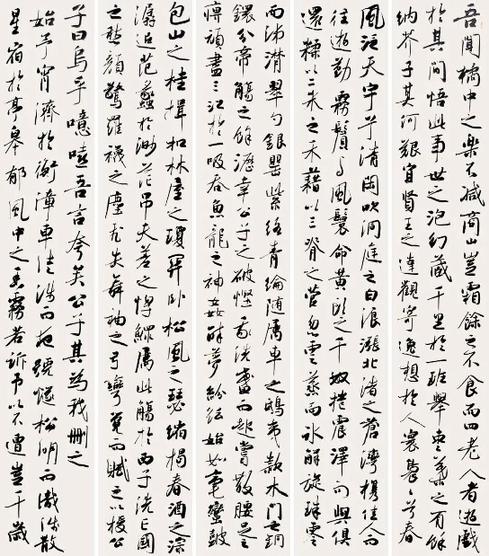 吾聞橘中之樂不減商山豈霜餘之不食而四老人者遊戲
於其間悟此事世之泡幻藏千里於一班舉棗葉之有餘
納芥子其何艱宜賢王之達觀寄逸想於人寰裊裊兮春
風泛天宇兮清閑吹洞庭之白浪漲北渚之蒼灣攜佳人而
往遊勤霧鬢與風鬟命黃頭之千奴捲震澤而與俱
還糅以二米之禾藉以三脊之菅忽雲蒸而冰解旋珠零
而涕潸翠勺銀罌紫絡青綸隨屬車之鴟夷款木門之銅
鐶分帝觴之餘瀝幸公子之破慳我洗盞而起嘗散腰足之
痹頑盡三江於一吸吞魚龍之神姦醉夢紛紜始如髦蠻鼓
包山之桂楫扣林屋之瓊關臥松風之瑟縮揭春溜之淙
潺追范蠡於渺茫弔夫差之惸鰥屬此觴於西子洗亡國
之愁顏驚羅襪之塵飛失舞袖之弓彎覺而賦之以授公
子曰烏乎噫嘻吾言夸矣公子其為我刪之
始予宵濟於衡漳車徒涉而夜號燧松明而識淺散
星宿於亭皋郁風中之香霧若訴予以不遭豈千歲